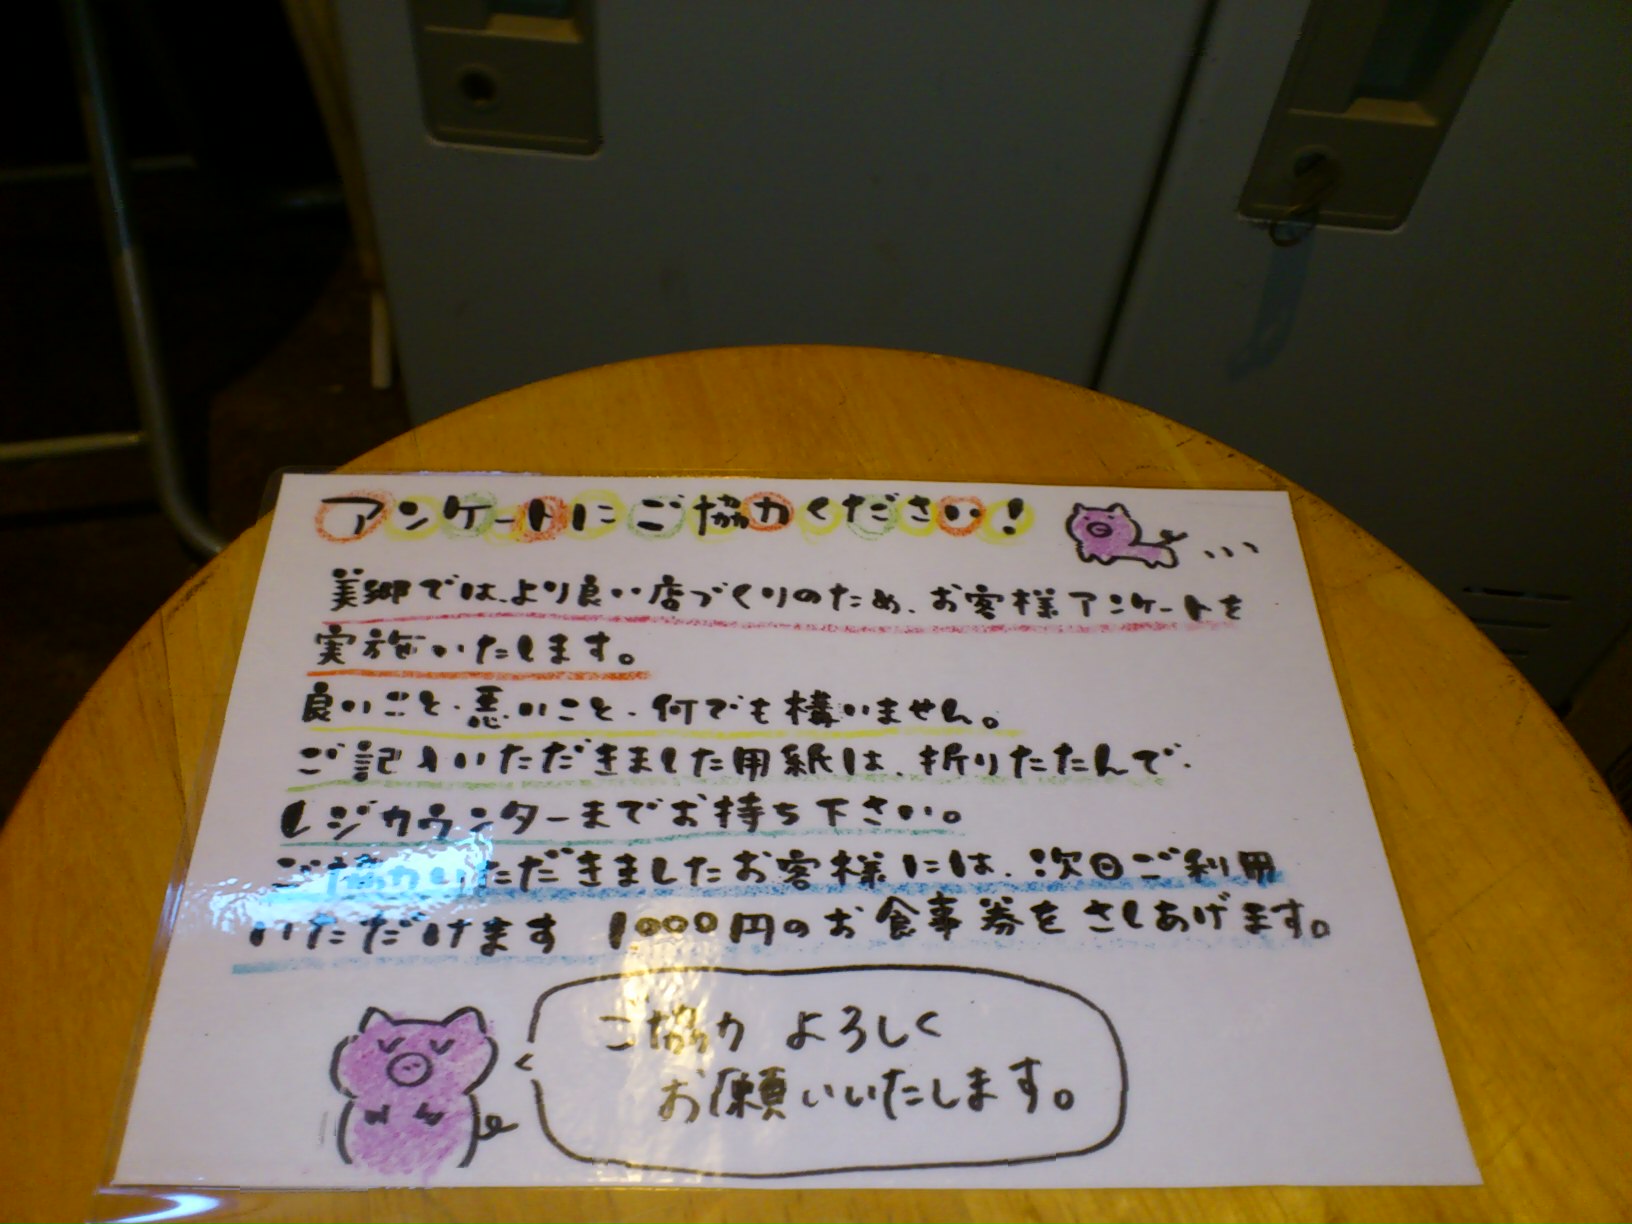 アンケートにご協力ください!
美郷では、より良い店づくりのため、お客様アンケートを
実施いたします。
良いこと・悪いこと・何でも構いません。
ご記入いただきました用紙は、折りたたんで、
レジカウンターまでお持ち下さい。
ご協力いただきましたお客様には、次回ご利用
いただけます 1000円のお食事券をさしあげます。
ご協力 よろしく
お願いいたします。